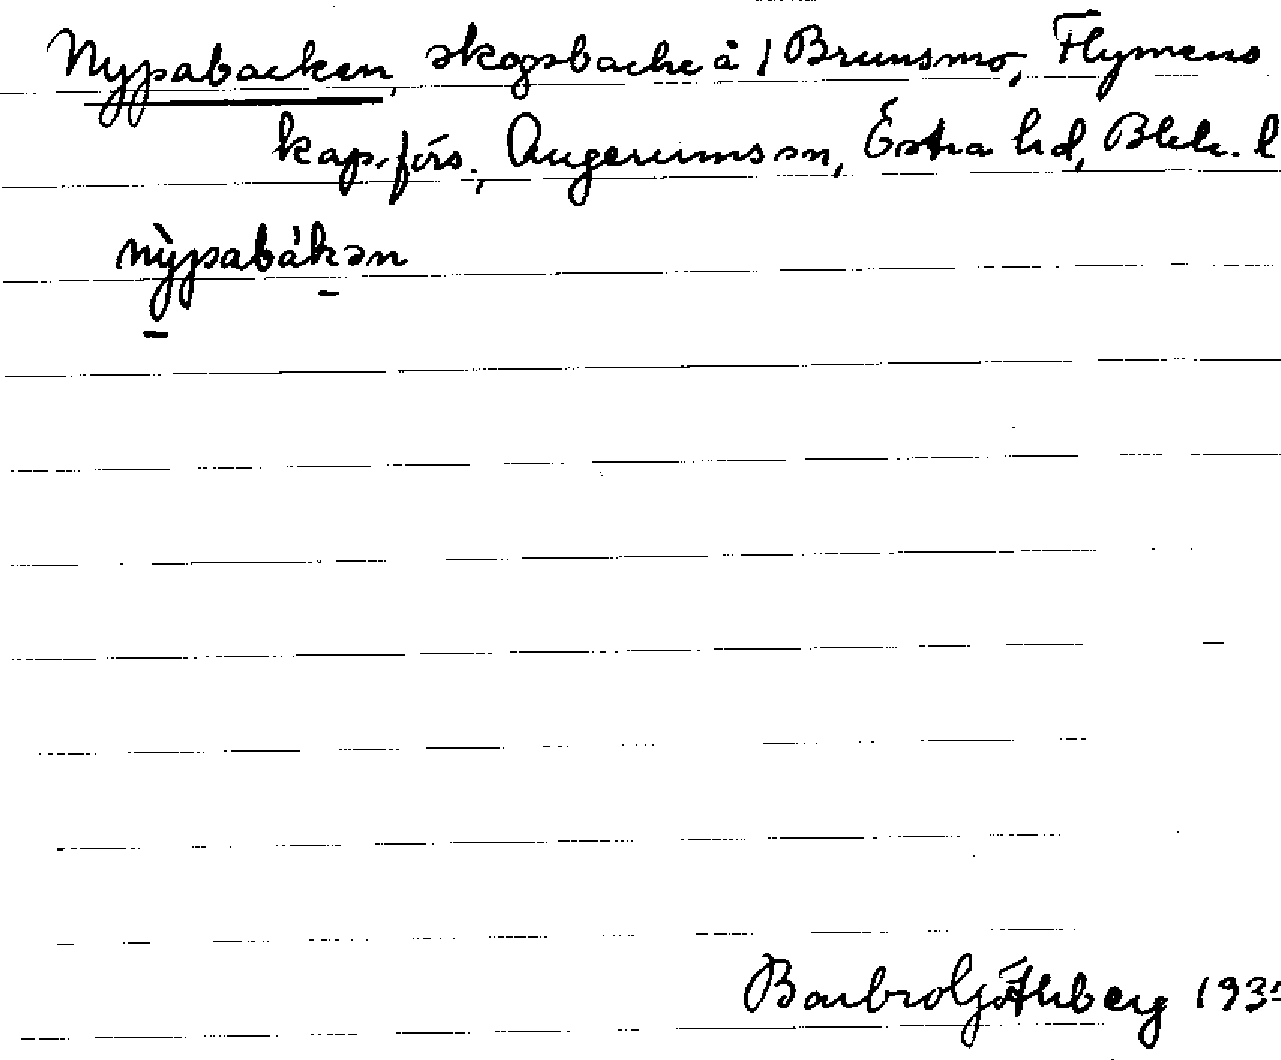 Nypabacken, skogsbacke å / Brunsmo, Flymens
kap.förs., Augerums sn, Östra hd, Blek. l
nỳpabákən
Barbro Göthberg 193